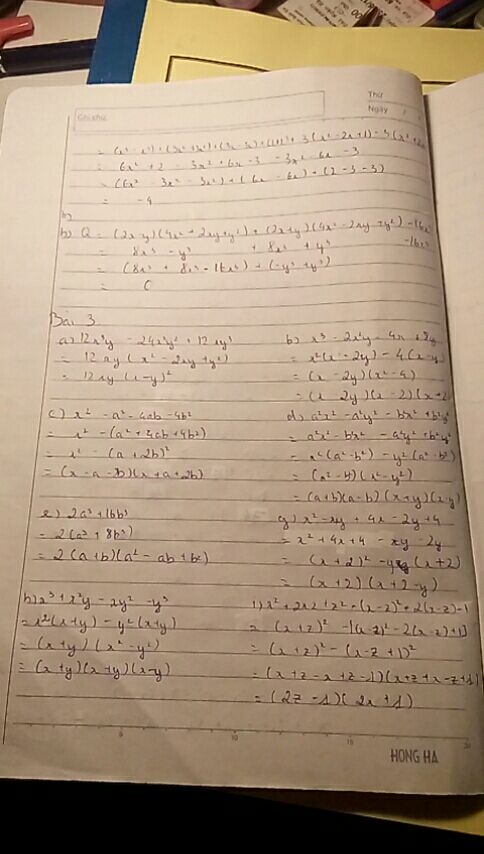 Ghi chú
Thứ
Ngày
= 6x² + 2 - 3x² + 6x - 3 - 3x² - 6x - 3
= (6x² - 3x² - 3x²) + (6x - 6x) + (2 - 3 - 3)
= -4
b)
b) Q = (2x-y)(4x² + 2xy + y²) + (2x+y)(4x² - 2xy + y²) - 16x³
= 8x³ - y³ + 8x³ + y³ - 16x³
= (8x³ + 8x³ - 16x³) + (-y³ + y³)
= 0
Bài 3
a) 12x³y - 24x²y² + 12xy³
= 12xy(x² - 2xy + y²)
= 12xy(x-y)²
b) x³ - 2x²y - 4x + 8y
= x²(x - 2y) - 4(x-y)
= (x - 2y)(x² - 4)
= (x - 2y)(x - 2)(x + 2
c) x² - a² - 4ab - 4b²
= x² - (a² + 4ab + 4b²)
= x² - (a + 2b)²
= (x - a - 2b)(x + a + 2b)
d) a²x² - a²y² - b²x² + b²y²
= a²x² - b²x² - a²y² + b²y²
= x²(a² - b²) - y²(a² - b²)
= (a² - b²)(x² - y²)
= (a+b)(a-b)(x+y)(x-y)
e) 2a³ + 16b³
= 2(a³ + 8b³)
= 2(a+b)(a² - ab + b²)
g) x² - xy + 4x - 2y + 4
= x² + 4x + 4 - xy - 2y
= (x + 2)² - y(x + 2)
= (x + 2)(x + 2 - y)
h) x³ + x²y - xy² - y³
= x²(x+y) - y²(x+y)
= (x+y)(x² - y²)
= (x+y)(x+y)(x-y)
i) x² + 2xz + z² - (x-z)² + 2(x-z) - 1
= (x+z)² - [(x-z)² - 2(x-z) + 1]
= (x+z)² - (x-z+1)²
= (x+z-x+z-1)(x+z+x-z+1)
= (2z - 1)(2x + 1)
5 10 15 20
HONG HA